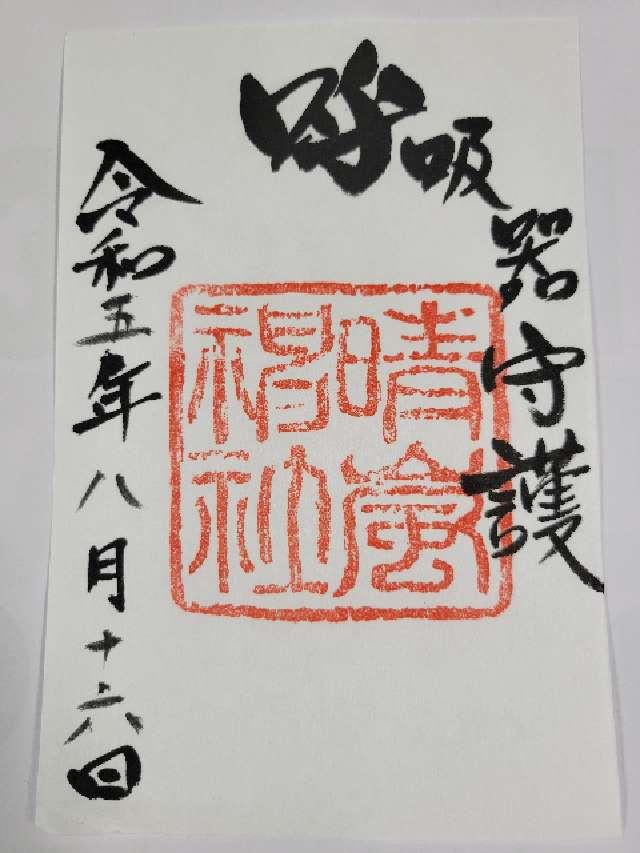 呼吸器守護
晴嵐
神社
令和五年八月十六日